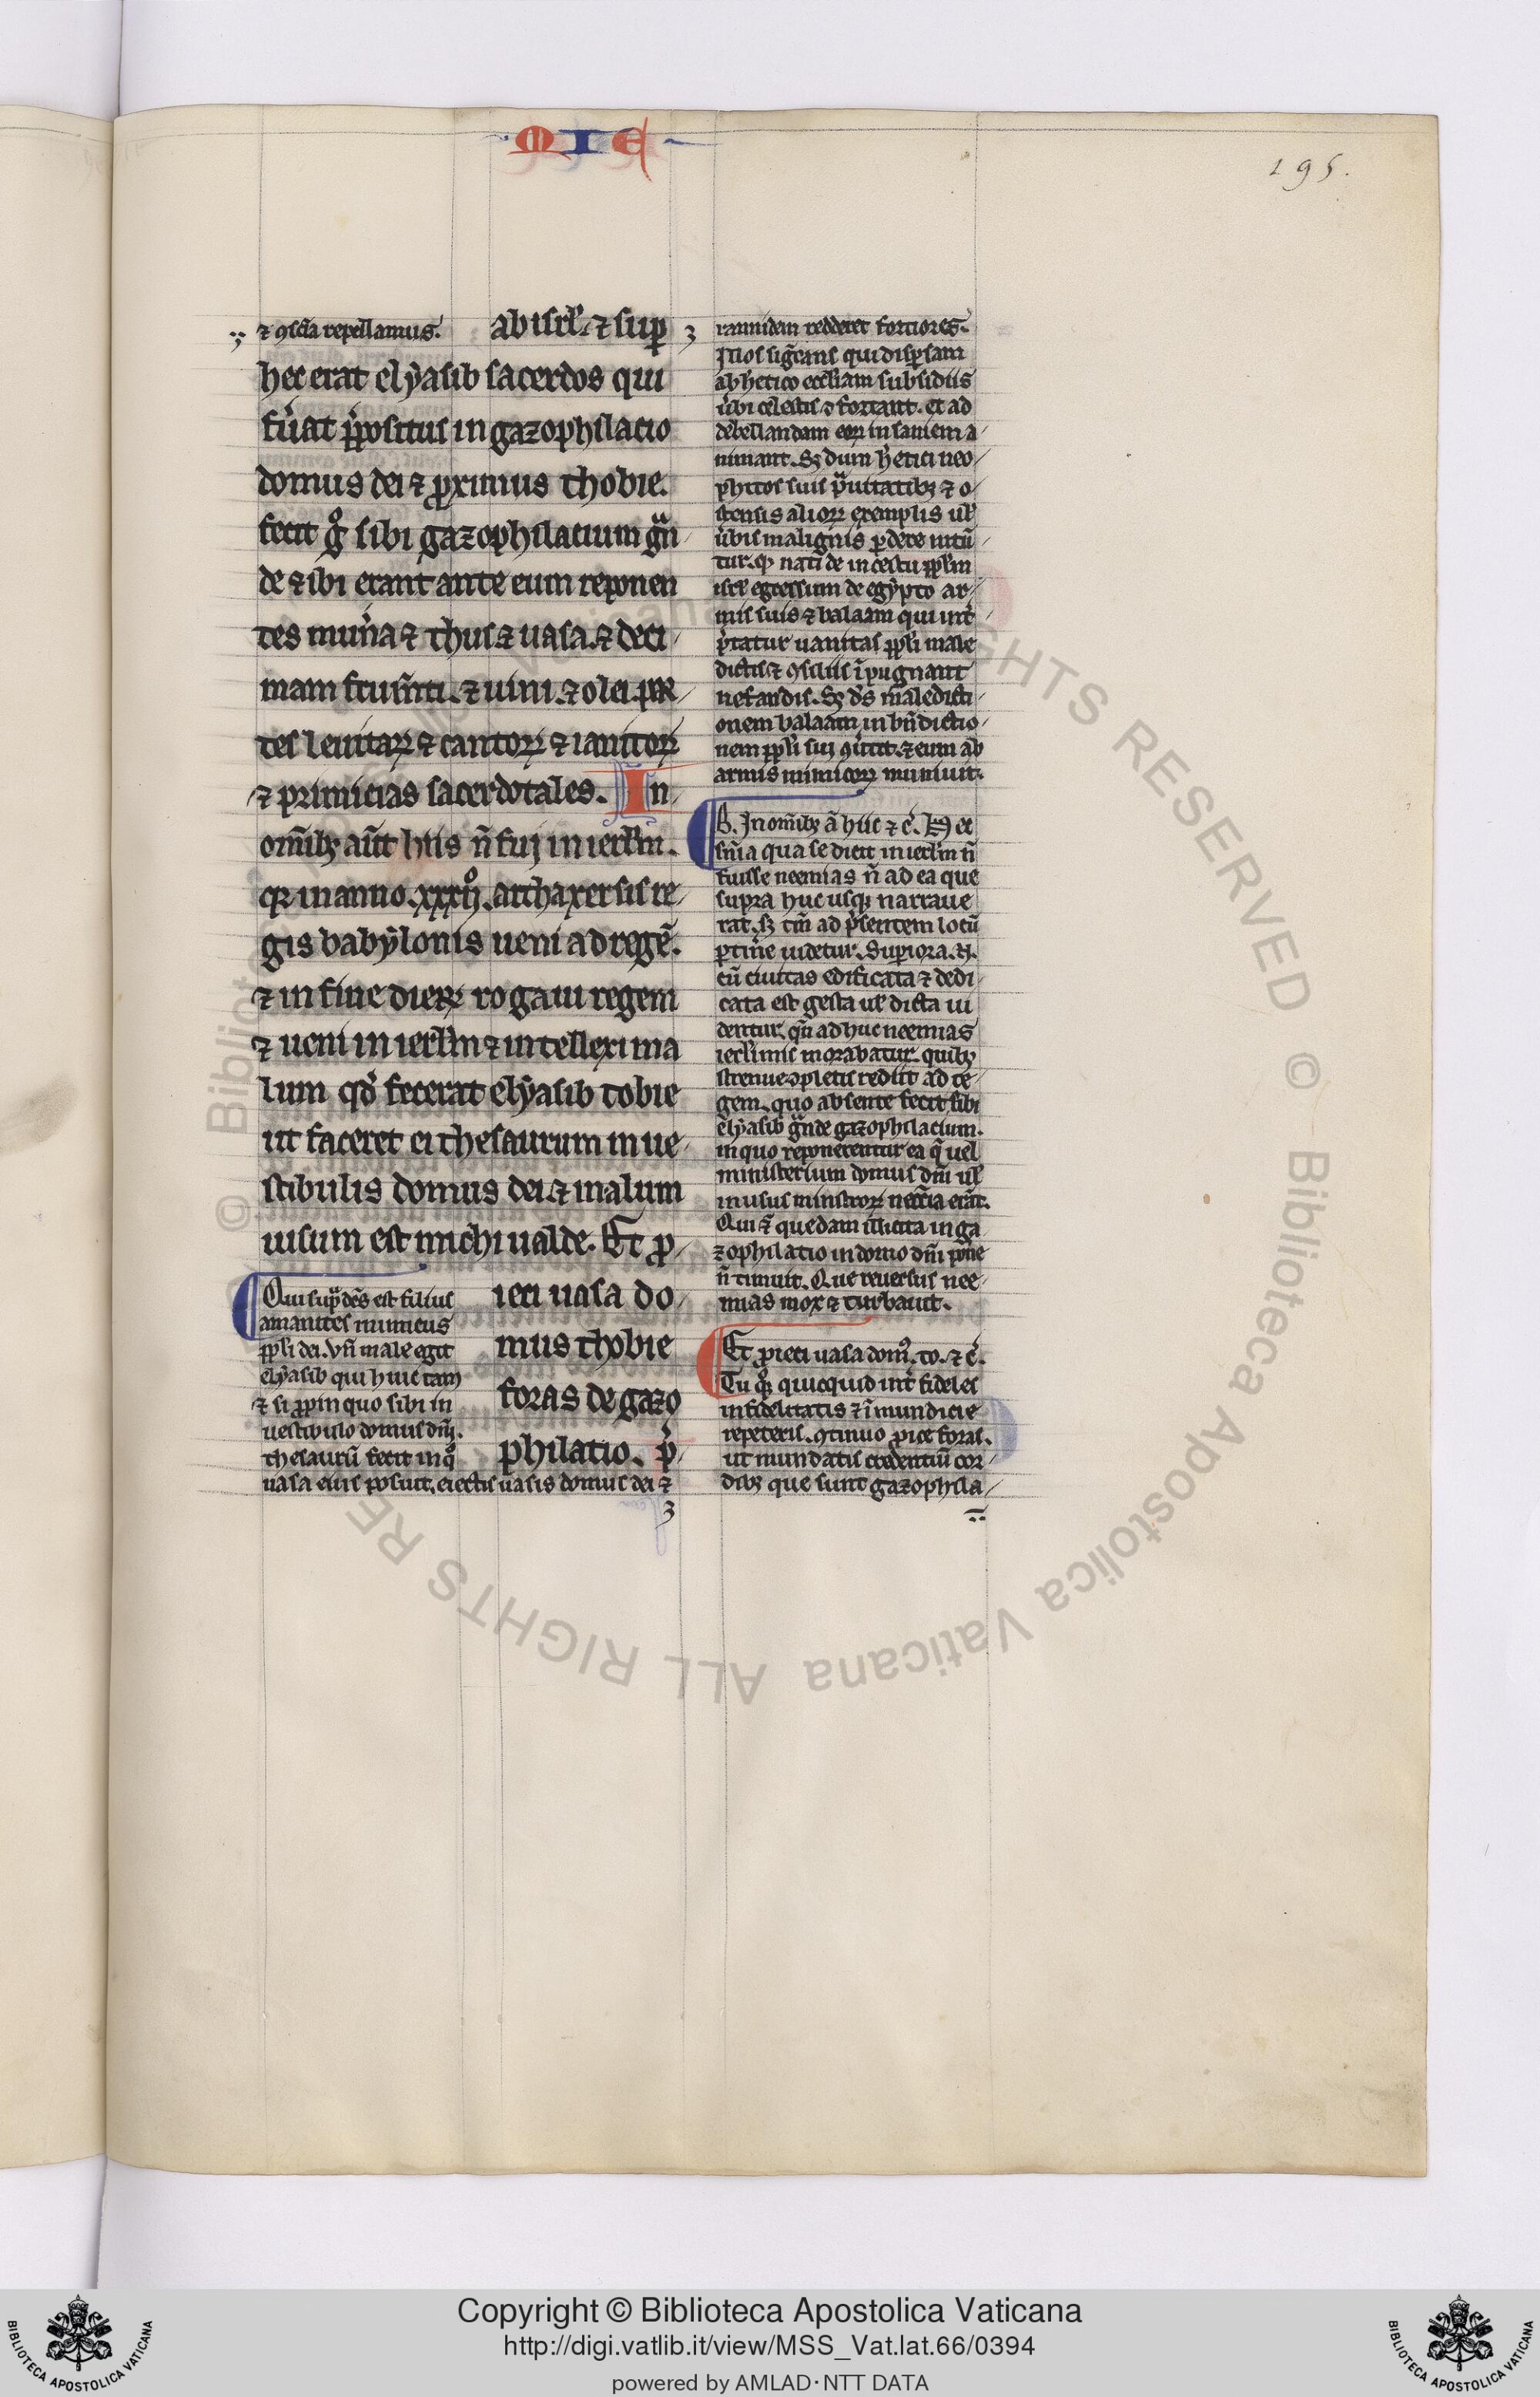 MIE
195.
⁊ ꝯscīa repellamus.
ab isrl̄. ⁊ suꝑ
hec erat elẏasib sacerdos qui
fu̾at p̄positus in gazophilacio
domus dei ⁊ ꝓximus thobie.
fecit gͦ sibi gazophilacium gͣn
de ⁊ ibi erant ante eum reponen
tes mun̾a ⁊ thus ⁊ uasa. ⁊ deci
mam frum̄ti. ⁊ uini. ⁊ olei. par
tes leuitaꝝ ⁊ cantoꝝ ⁊ ianitoꝝ
⁊ primicias sacerdotales. In
om̄ibꝫ aūt hiis n̄ fui in ierl̄m.
qr in anno. xxxijͦ. arthaxersis re
gis babẏlonis ueni ad regē.
⁊ in fine dieꝝ rogaui regem
⁊ ueni in ierl̄m ⁊ intellexi ma
lum qd̾ fecerat elẏasib tobie
ut faceret ei thesaurum in ue
stibulis domus dei ⁊ malum
uisum est michi ualde. Et ꝓ
ieci uasa do
mus thobie
foras de gazo
philatio. p̾
Qui supͣ d̄cs est filius
amanites inimicus
ppl̄i dei. vn̄ male egit
elẏasib qui huic tam
⁊ si ꝓpinquo sibi in
uestibulo domus dn̄i.
thesaurū fecit in qͦ
uasa eius posuit, eiectis uasis domus dei ⁊
rannidem redderet fortiores.
Illos siḡcans qui dispersam
ab hetico eccl̄iam subsidiis
u̾bi celestis ꝯfortant. et ad
debellandam eoꝝ insaniem a
nimant. Sꝫ dum h̾etici neo
phitos suis prauitatibꝫ ⁊ o
stensis alioꝝ exemplis ul̄
u̾bis malignis ꝑdere nitū
tur. qͥ nati de incestu ppl̄m
isrl̄ egressum de egẏpto ar
mis suis ⁊ balaam qui int̾
p̾tatur uanitas ppl̄i male
dictis ⁊ ꝯsiliis īpugnant
nefandis. Sꝫ d̄s maledicti
onem balaam in bn̄dictio
nem ppl̄i sui ꝯu̾tit. ⁊ eum ab
armis inimicoꝝ muniuit.
B. In om̄ibꝫ ā hiis ⁊ c̾. Hec
sn̄ia qua se dicit in ierl̄m n̄
fuisse neemias n̄ ad ea que
supra huc usqꝫ narraue
rat. sꝫ tm̄ ad p̾sentem locū
ꝑtin̾e uidetur. Superiora. N.
cū ciuitas edificata ⁊ dedi
cata est gesta ul̄ dicta ui
dentur, qn̄ adhuc neemias
ierl̄imis morabatur. quibꝫ
strenue ꝯpletis rediit ad re
gem. quo absente fecit sibi
elẏasib gͣnde gazophilacium.
in quo reponerentur ea q̄ uel
ministerium domus dn̄i ul̄
in usus ministroꝝ nec̄cia erāt.
Qui ⁊ quedam illicita in ga
zophilatio in domo dn̄i pon̾e
n̄ timuit. Que reuersus nee
mias mox ⁊ turbauit.
Et ꝓieci uasa domꝰ. to. ⁊ c̾.
Tu qͦqꝫ quicquid int̾ fideles
infidelitatis ⁊ īmundicie
reperis. ꝯtinuo ꝓice foras.
ut mundatis credentiū cor
dibꝫ que sunt gazophila
Copyright © Biblioteca Apostolica Vaticana
http://digi.vatlib.it/view/MSS_Vat.lat.66/0394
powered by AMLAD·NTT DATA
BIBLIOTECA APOSTOLICA VATICANA
BIBLIOTECA APOSTOLICA VATICANA
© Biblioteca Apostolica Vaticana ALL RIGHTS RESERVED © Biblioteca Apostolica Vaticana ALL RIGHTS RE